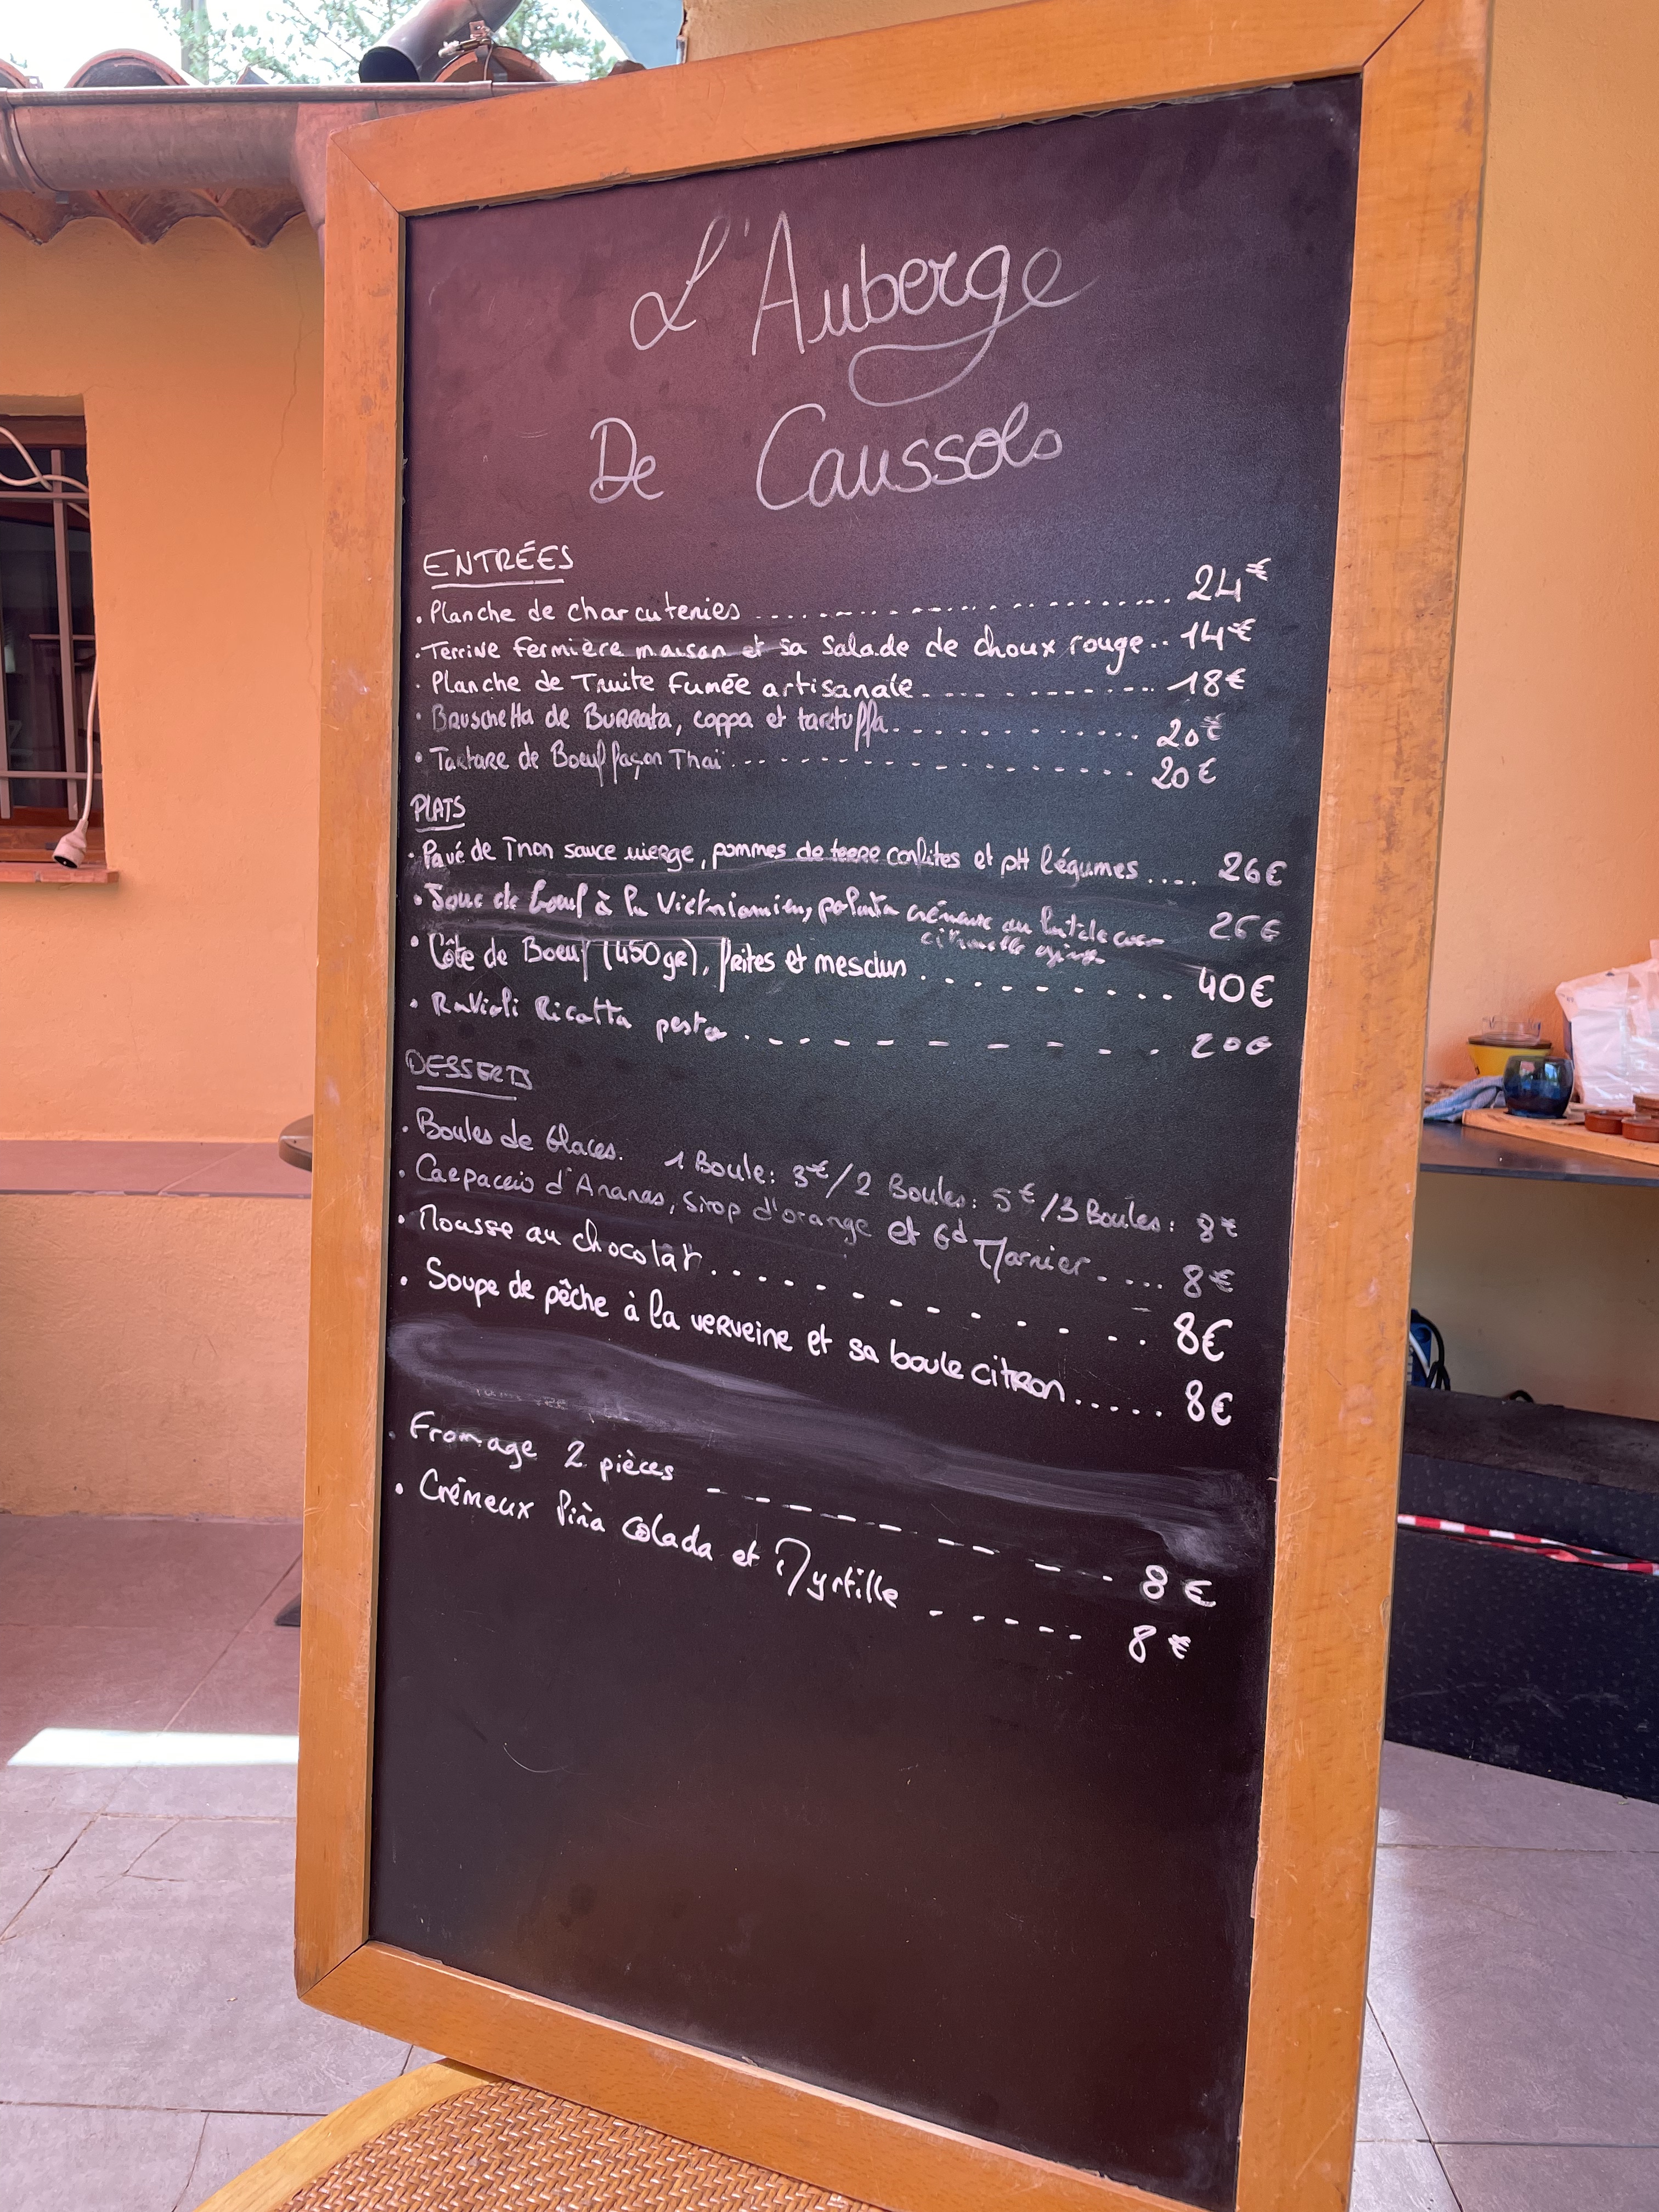 L'Auberge
De Caussols
ENTRÉES
. Planche de charcuteries ........................ 24€
. Terrine fermière maison et sa Salade de choux rouge.. 14€
. Planche de Truite Fumée artisanale............ 18€
. Bruschetta de Burrata, coppa et tartuffa............ 20€
. Tartare de Boeuf façon Thaï.................. 20€
PLATS
. Pavé de Thon sauce vierge, pommes de terre confites et ptt légumes.... 26€
. Joue de boeuf à la Vietnamienne, polenta crémeuse au lait de coco 26€
citronnelle
. Côte de Boeuf (450gr), frites et mesclun.......... 40€
. Ravioli Ricotta pesto.......... 20€
DESSERTS
. Boules de Glaces. 1 Boule: 3€/2 Boules: 5€/3 Boules: 8€
. Carpaccio d'Ananas, sirop d'orange et Gd Marnier..... 8€
. Mousse au chocolat............. 8€
. Soupe de pêche à la verveine et sa boule citron..... 8€
. Fromage 2 pièces ---------- 8€
. Crémeux Piña colada et Myrtille ----- 8€